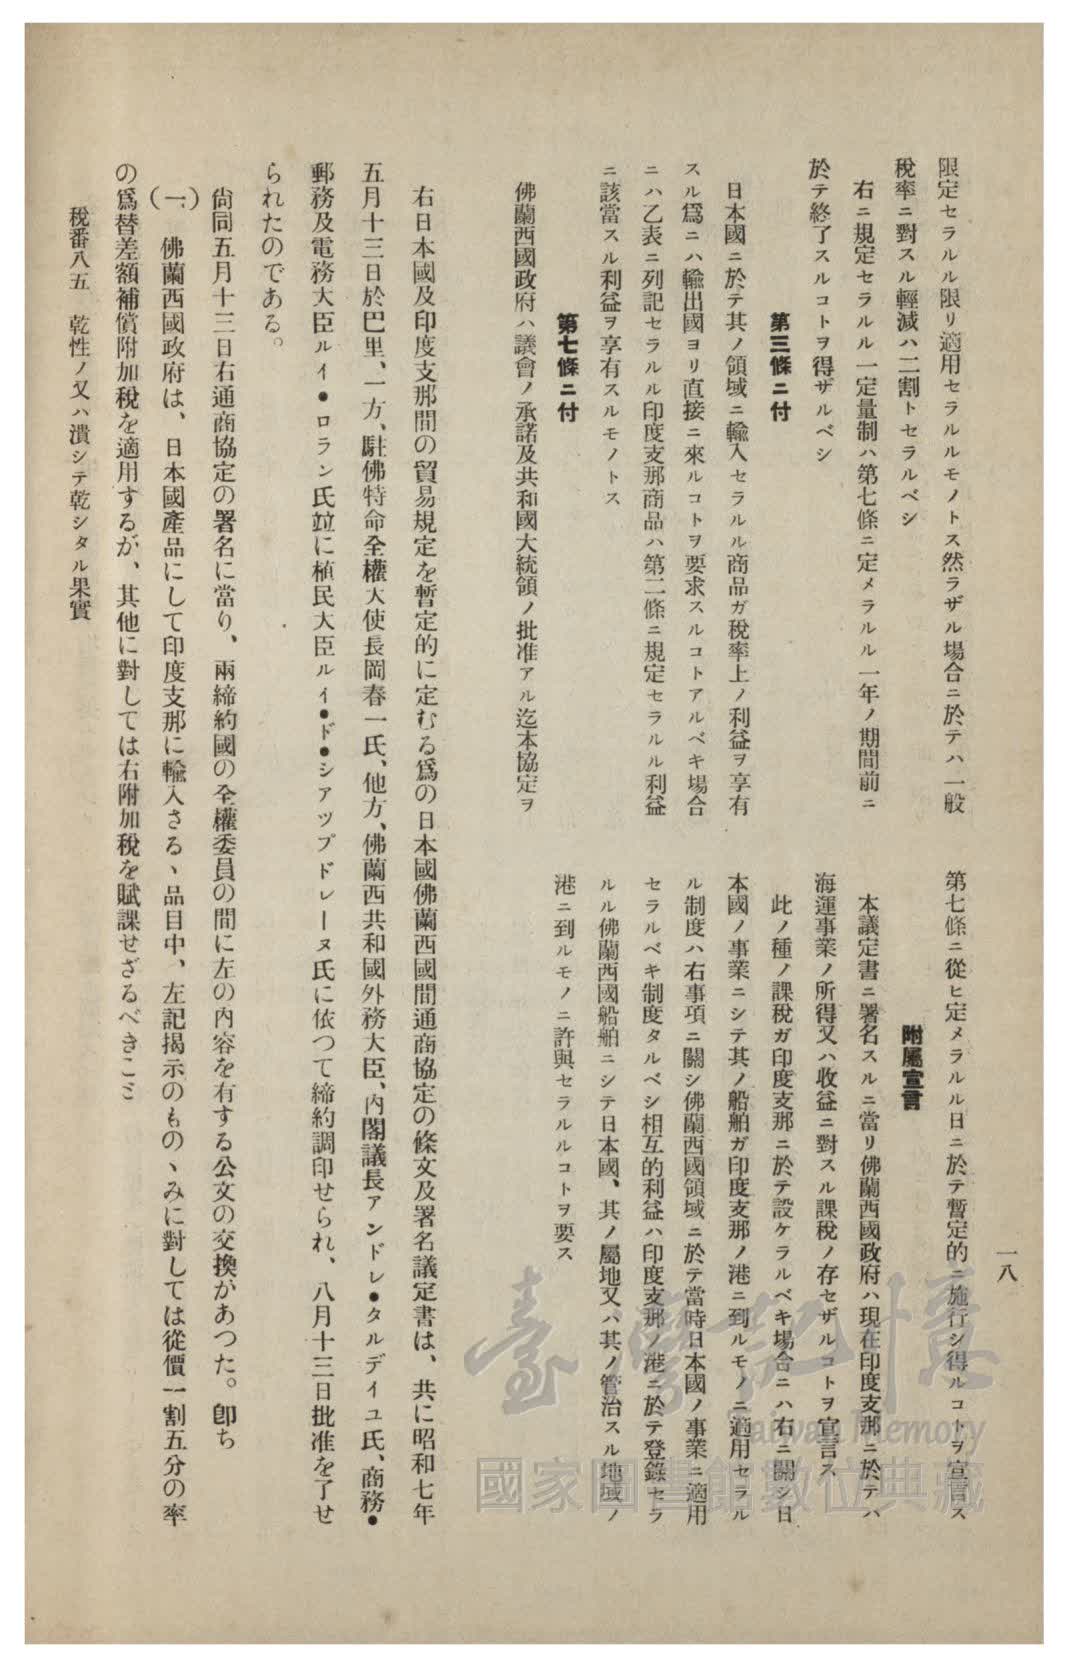 一八
限定セラルル限リ適用セラルルモノトス然ラザル場合ニ於テハ一般
稅率ニ對スル輕減ハ二割トセラルベシ
右ニ規定セラルル一定量制ハ第七條ニ定メラルル一年ノ期間前ニ
於テ終了スルコトヲ得ザルベシ
第三條ニ付
日本國ニ於テ其ノ領域ニ輸入セラルル商品ガ稅率上ノ利益ヲ享有
スル爲ニハ輸出國ヨリ直接ニ來ルコトヲ要求スルコトアルベキ場合
ニハ乙表ニ列記セラルル印度支那商品ハ第二條ニ規定セラルル利益
ニ該當スル利益ヲ享有スルモノトス
第七條ニ付
佛蘭西國政府ハ議會ノ承諾及共和國大統領ノ批准アル迄本協定ヲ
第七條ニ從ヒ定メラルル日ニ於テ暫定的ニ施行シ得ルコトヲ宣言ス
附屬宣言
本議定書ニ署名スルニ當リ佛蘭西國政府ハ現在印度支那ニ於テハ
海運事業ノ所得又ハ收益ニ對スル課稅ノ存セザルコトヲ宣言ス
此ノ種ノ課稅ガ印度支那ニ於テ設ケラルベキ場合ニハ右ニ關シ日
本國ノ事業ニシテ其ノ船舶ガ印度支那ノ港ニ到ルモノニ適用セラル
ル制度ハ右事項ニ關シ佛蘭西國領域ニ於テ當時日本國ノ事業ニ適用
セラルベキ制度タルベシ相互的利益ハ印度支那ノ港ニ於テ登錄セラ
ルル佛蘭西國船舶ニシテ日本國、其ノ屬地又ハ其ノ管治スル地域ノ
港ニ到ルモノニ許與セラルルコトヲ要ス
右日本國及印度支那間の貿易規定を暫定的に定むる爲の日本國佛蘭西國間通商協定の條文及署名議定書は、共に昭和七年
五月十三日於巴里、一方、駐佛特命全權大使長岡春一氏、他方、佛蘭西共和國外務大臣、內閣議長アンドレ●タルデイユ氏、商務●
郵務及電務大臣ルイ●ロラン氏竝に植民大臣ルイ●ド●シアツプドレーヌ氏に依つて締約調印せられ、八月十三日批准を了せ
られたのである。
尙同五月十三日右通商協定の署名に當り、兩締約國の全權委員の間に左の內容を有する公文の交換があつた。卽ち
(一) 佛蘭西國政府は、日本國產品にして印度支那に輸入さるゝ品目中、左記揭示のものゝみに對しては從價一割五分の率
の爲替差額補償附加稅を適用するが、其他に對しては右附加稅を賦課せざるべきこと
稅番八五 乾性ノ又ハ潰シテ乾シタル果實
臺灣記憶
Taiwan Memory
國家圖書館數位典藏